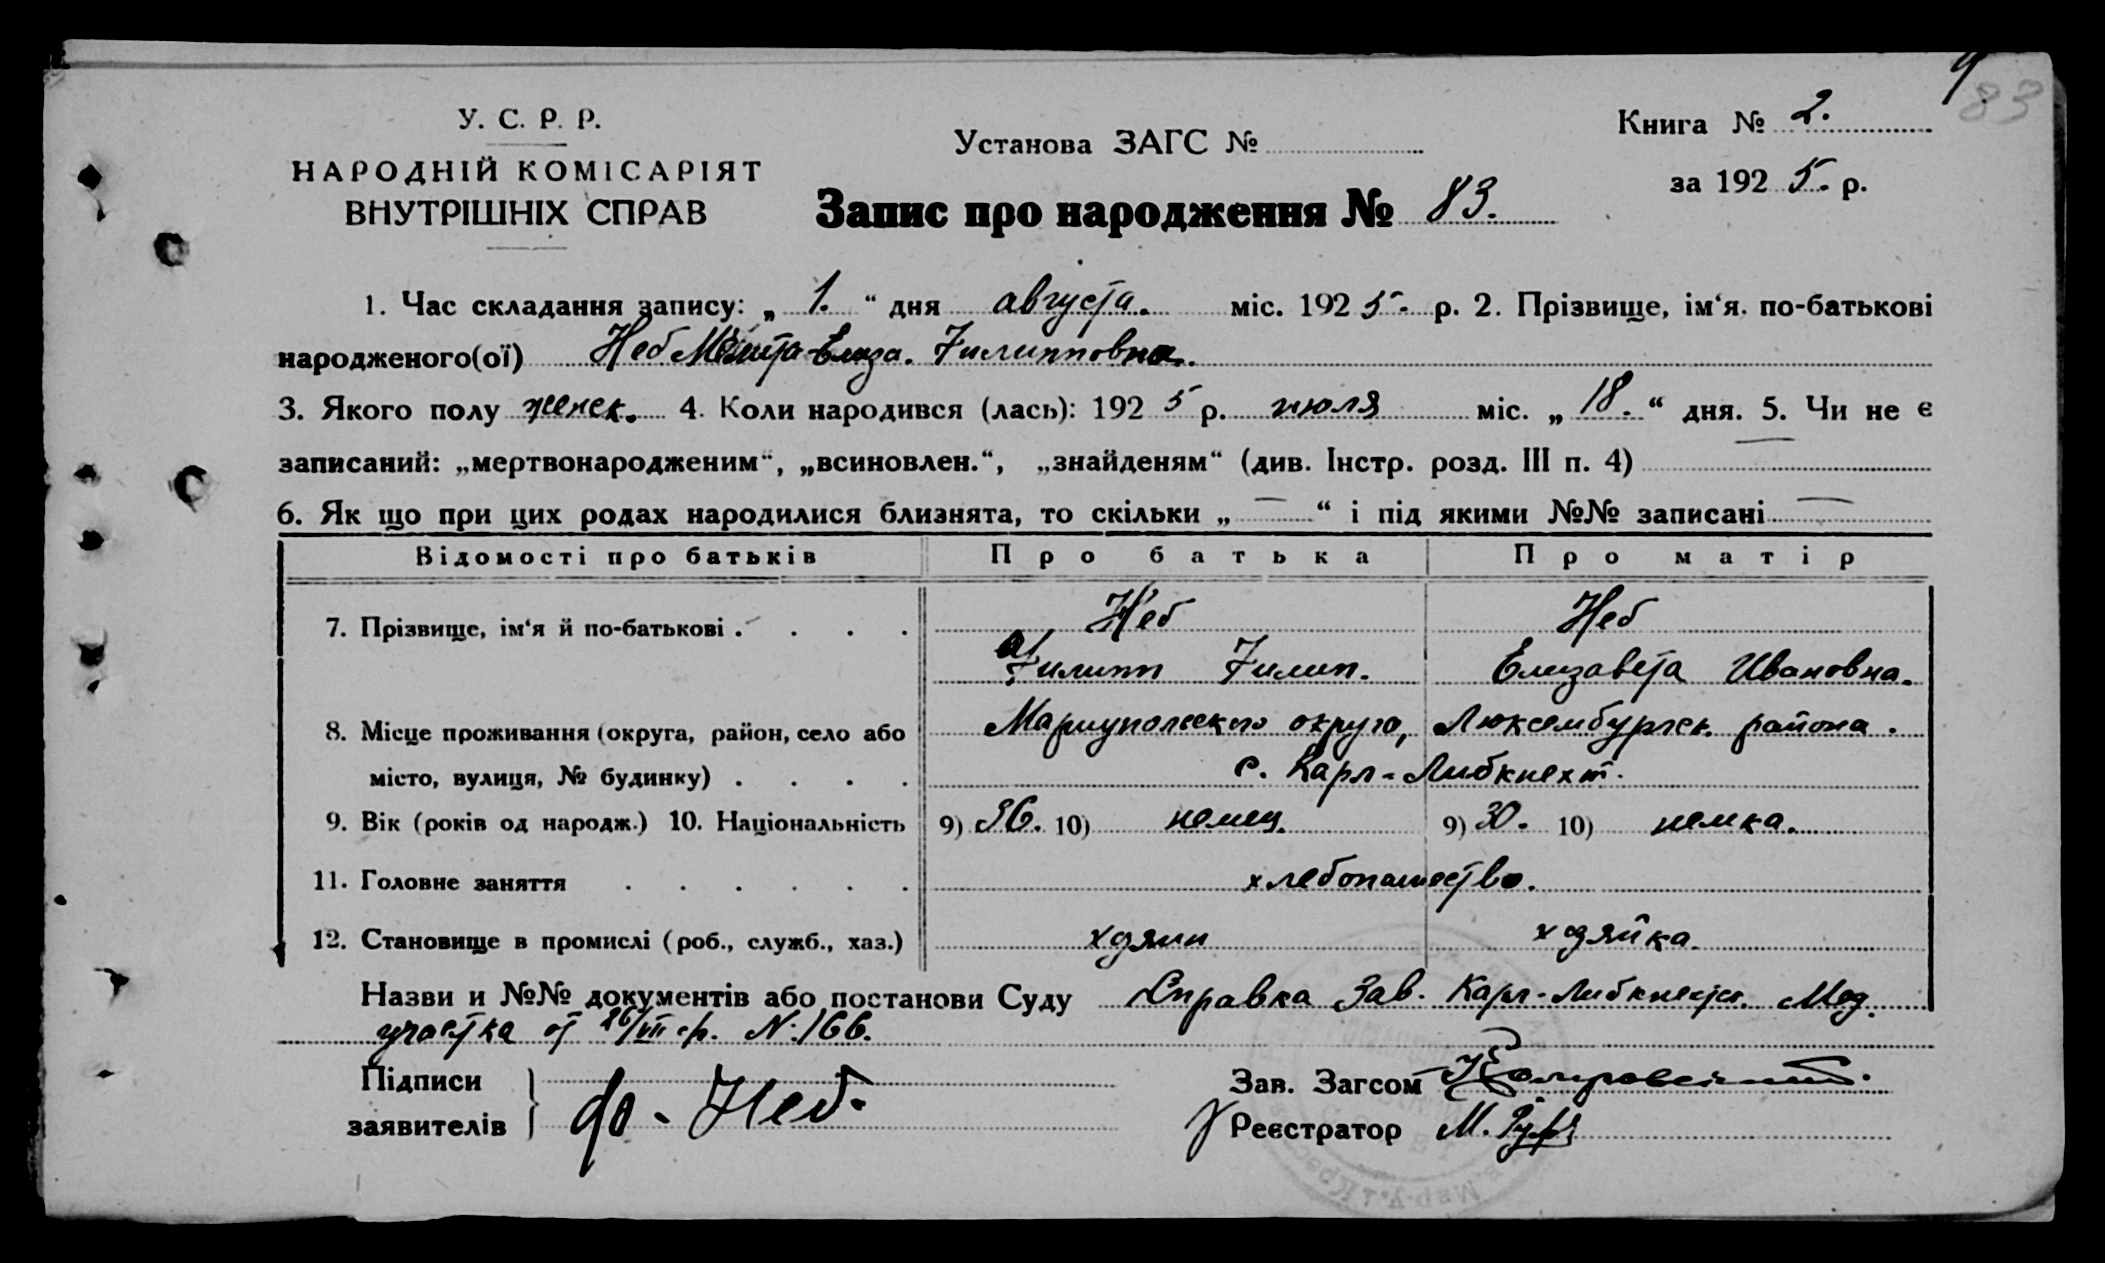 9
83
У. С. Р. Р.
НАРОДНІЙ КОМІСАРІЯТ
ВНУТРІШНІХ СПРАВ
Установа ЗАГС №
Книга № 2.
за 1925. р.
Запис про народження № 83.
1. Час складання запису: „ 1. “ дня августа. міс. 1925. р. 2. Прізвище, ім‘я. по-батькові
народженого(ої) Неб Елиза. Филипповна.
3. Якого полу женск. 4. Коли народився (лась): 1925 р. июля міс. „ 18. “ дня. 5. Чи не є
записаний: „мертвонародженим“, „всиновлен.“, „знайденям“ (див. Інстр. розд. III п. 4) —
6. Як що при цих родах народилися близнята, то скільки „ — “ і під якими №№ записані —
Відомості про батьків Про батька Про матір
7. Прізвище, ім‘я й по-батькові . . . . Неб Неб
Филипп Филип. Елизавета Ивановна.
8. Місце проживання (округа, район, село або Мариупольского округа, Люксембургск. района.
місто, вулиця, № будинку) . . . . с. Карл-Либкнехт.
9. Вік (років од народж.) 10. Національність 9) 36. 10) немец. 9) 30. 10) немка.
11. Головне заняття . . . . . . хлебопашество.
12. Становище в промислі (роб., служб., хаз.) хозяин хозяйка.
Назви и №№ документів або постанови Суду Справка Зав. Карл-Либкнехт. Мед.
участка от с/р. N: 166.
Підписи
заявителів } Ф. Неб.
Зав. Загсом
Реєстратор М.